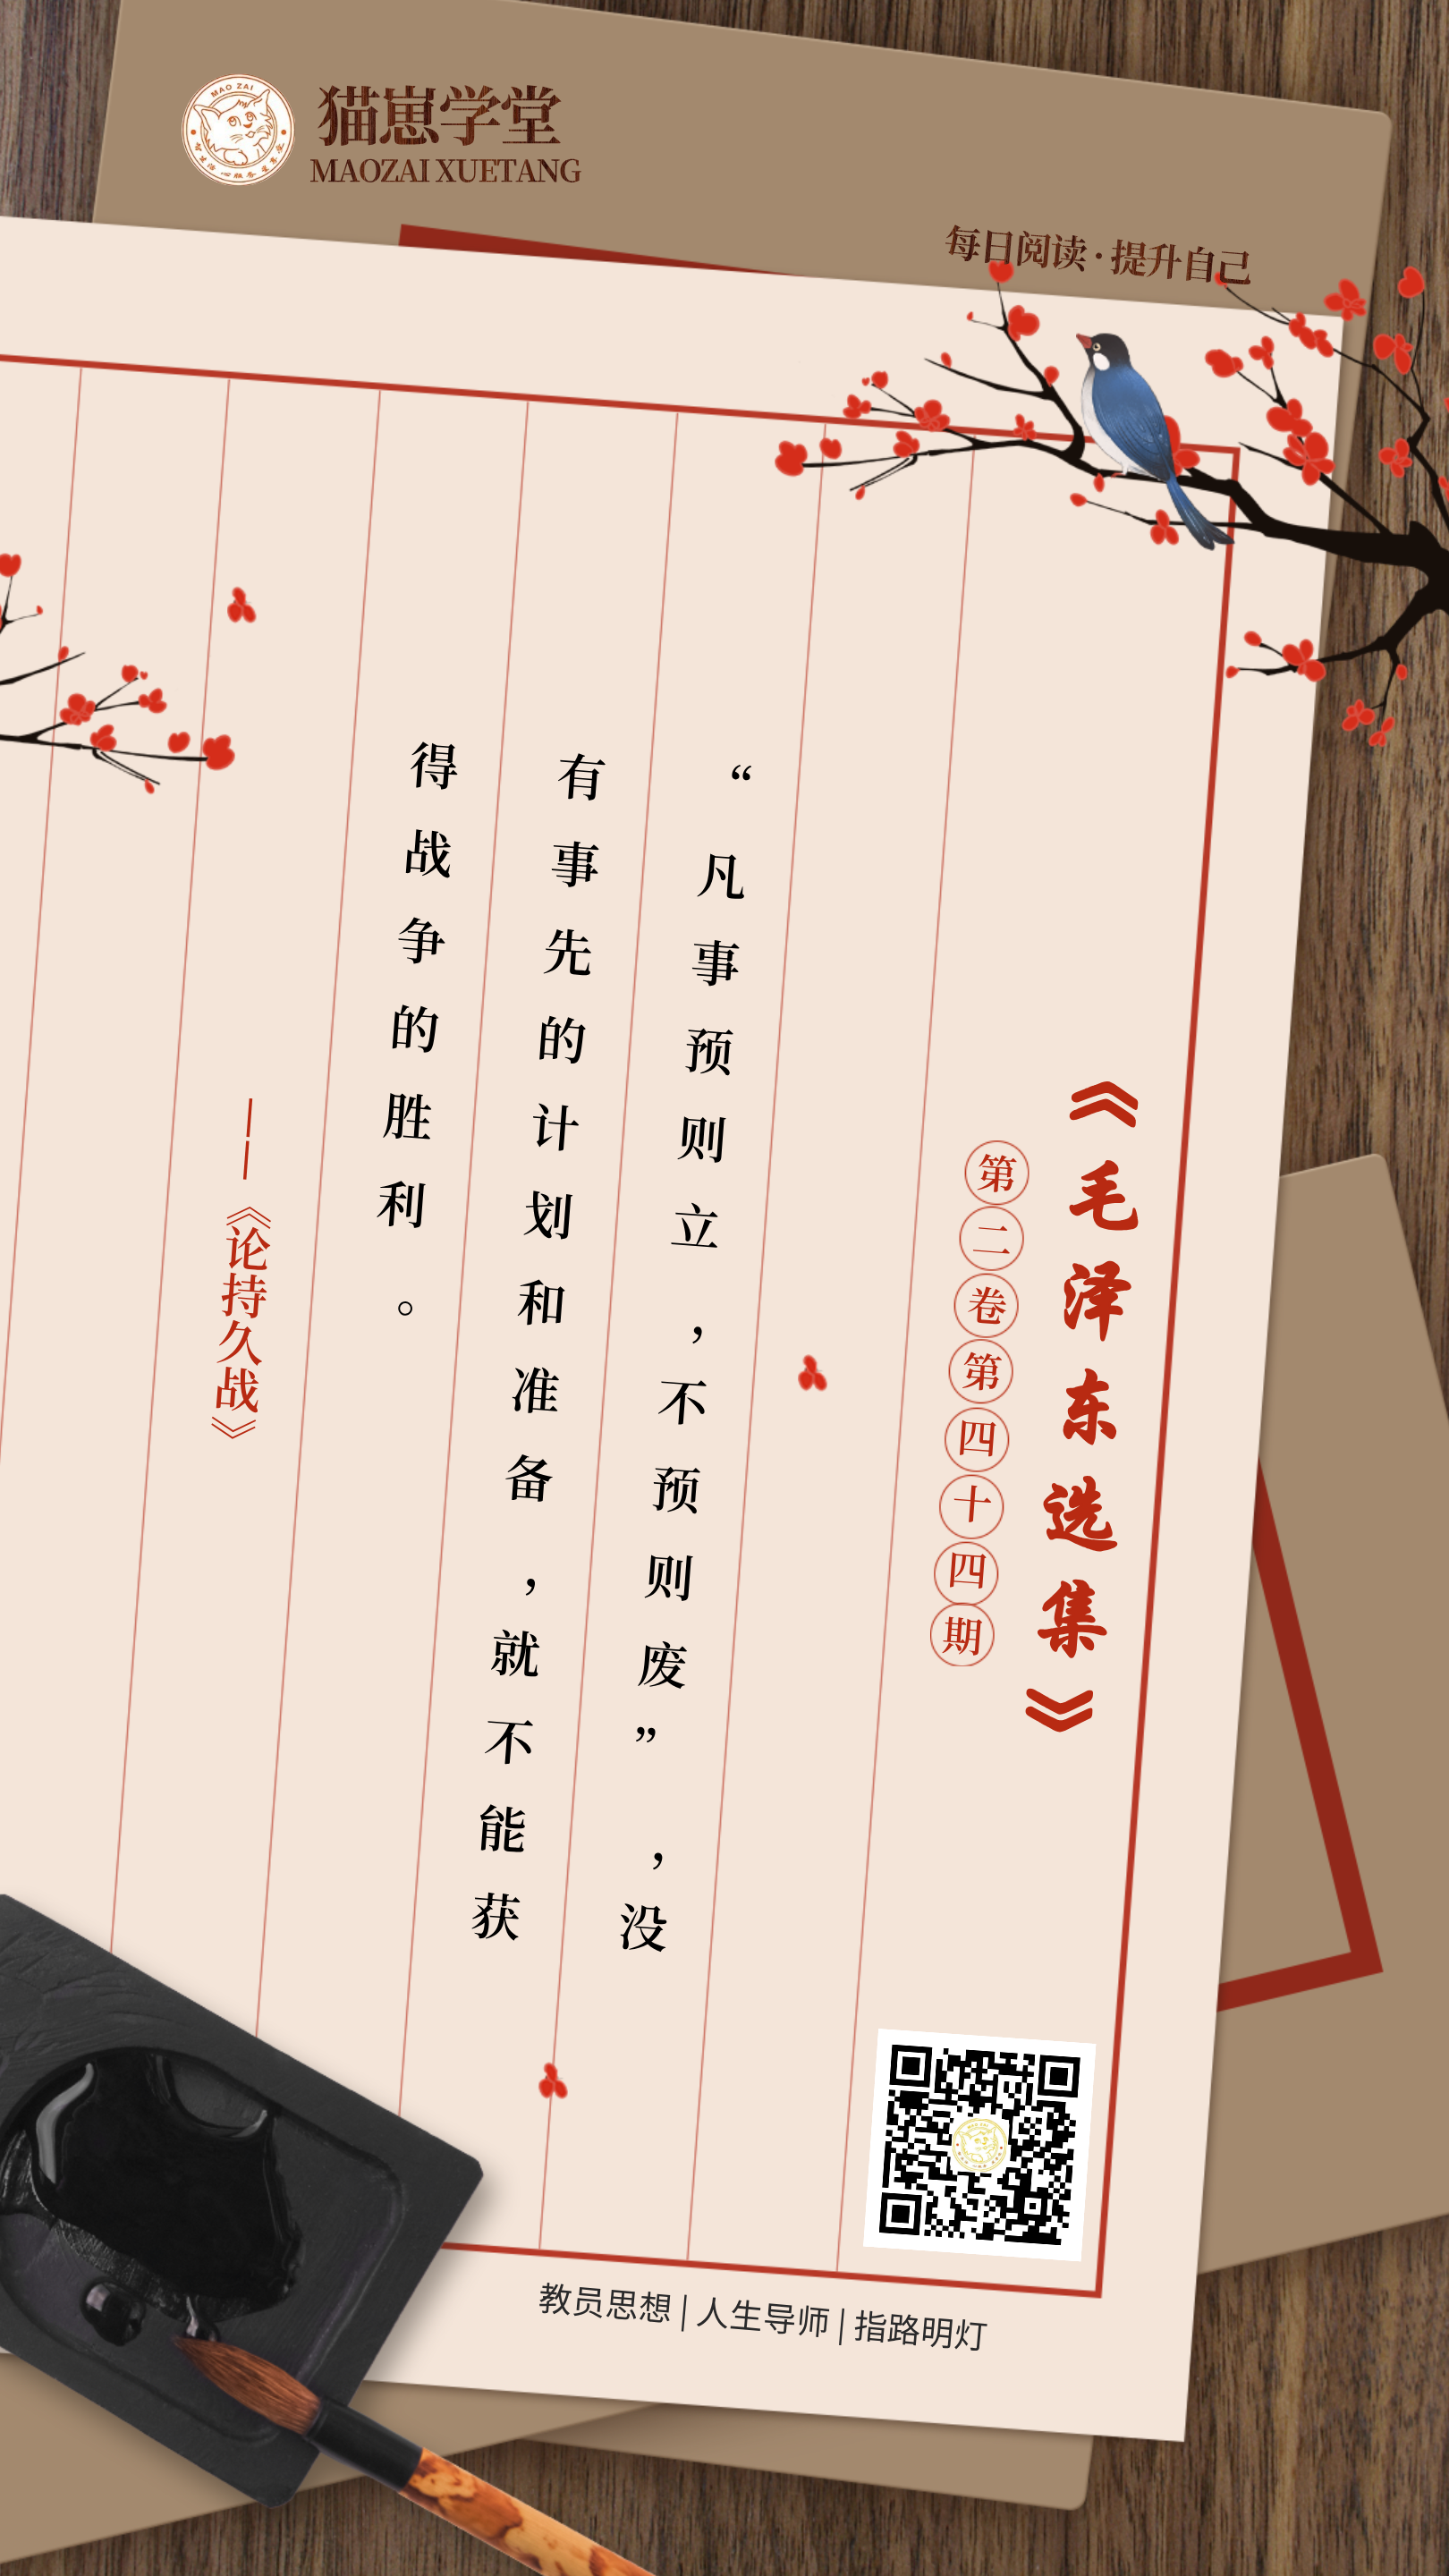 MAO ZAI
猫崽学堂
MAOZAI XUETANG
每日阅读·提升自己
《毛泽东选集》
第二卷第四十四期
“凡事预则立，不预则废”，没
有事先的计划和准备，就不能获
得战争的胜利。
——《论持久战》
教员思想|人生导师|指路明灯